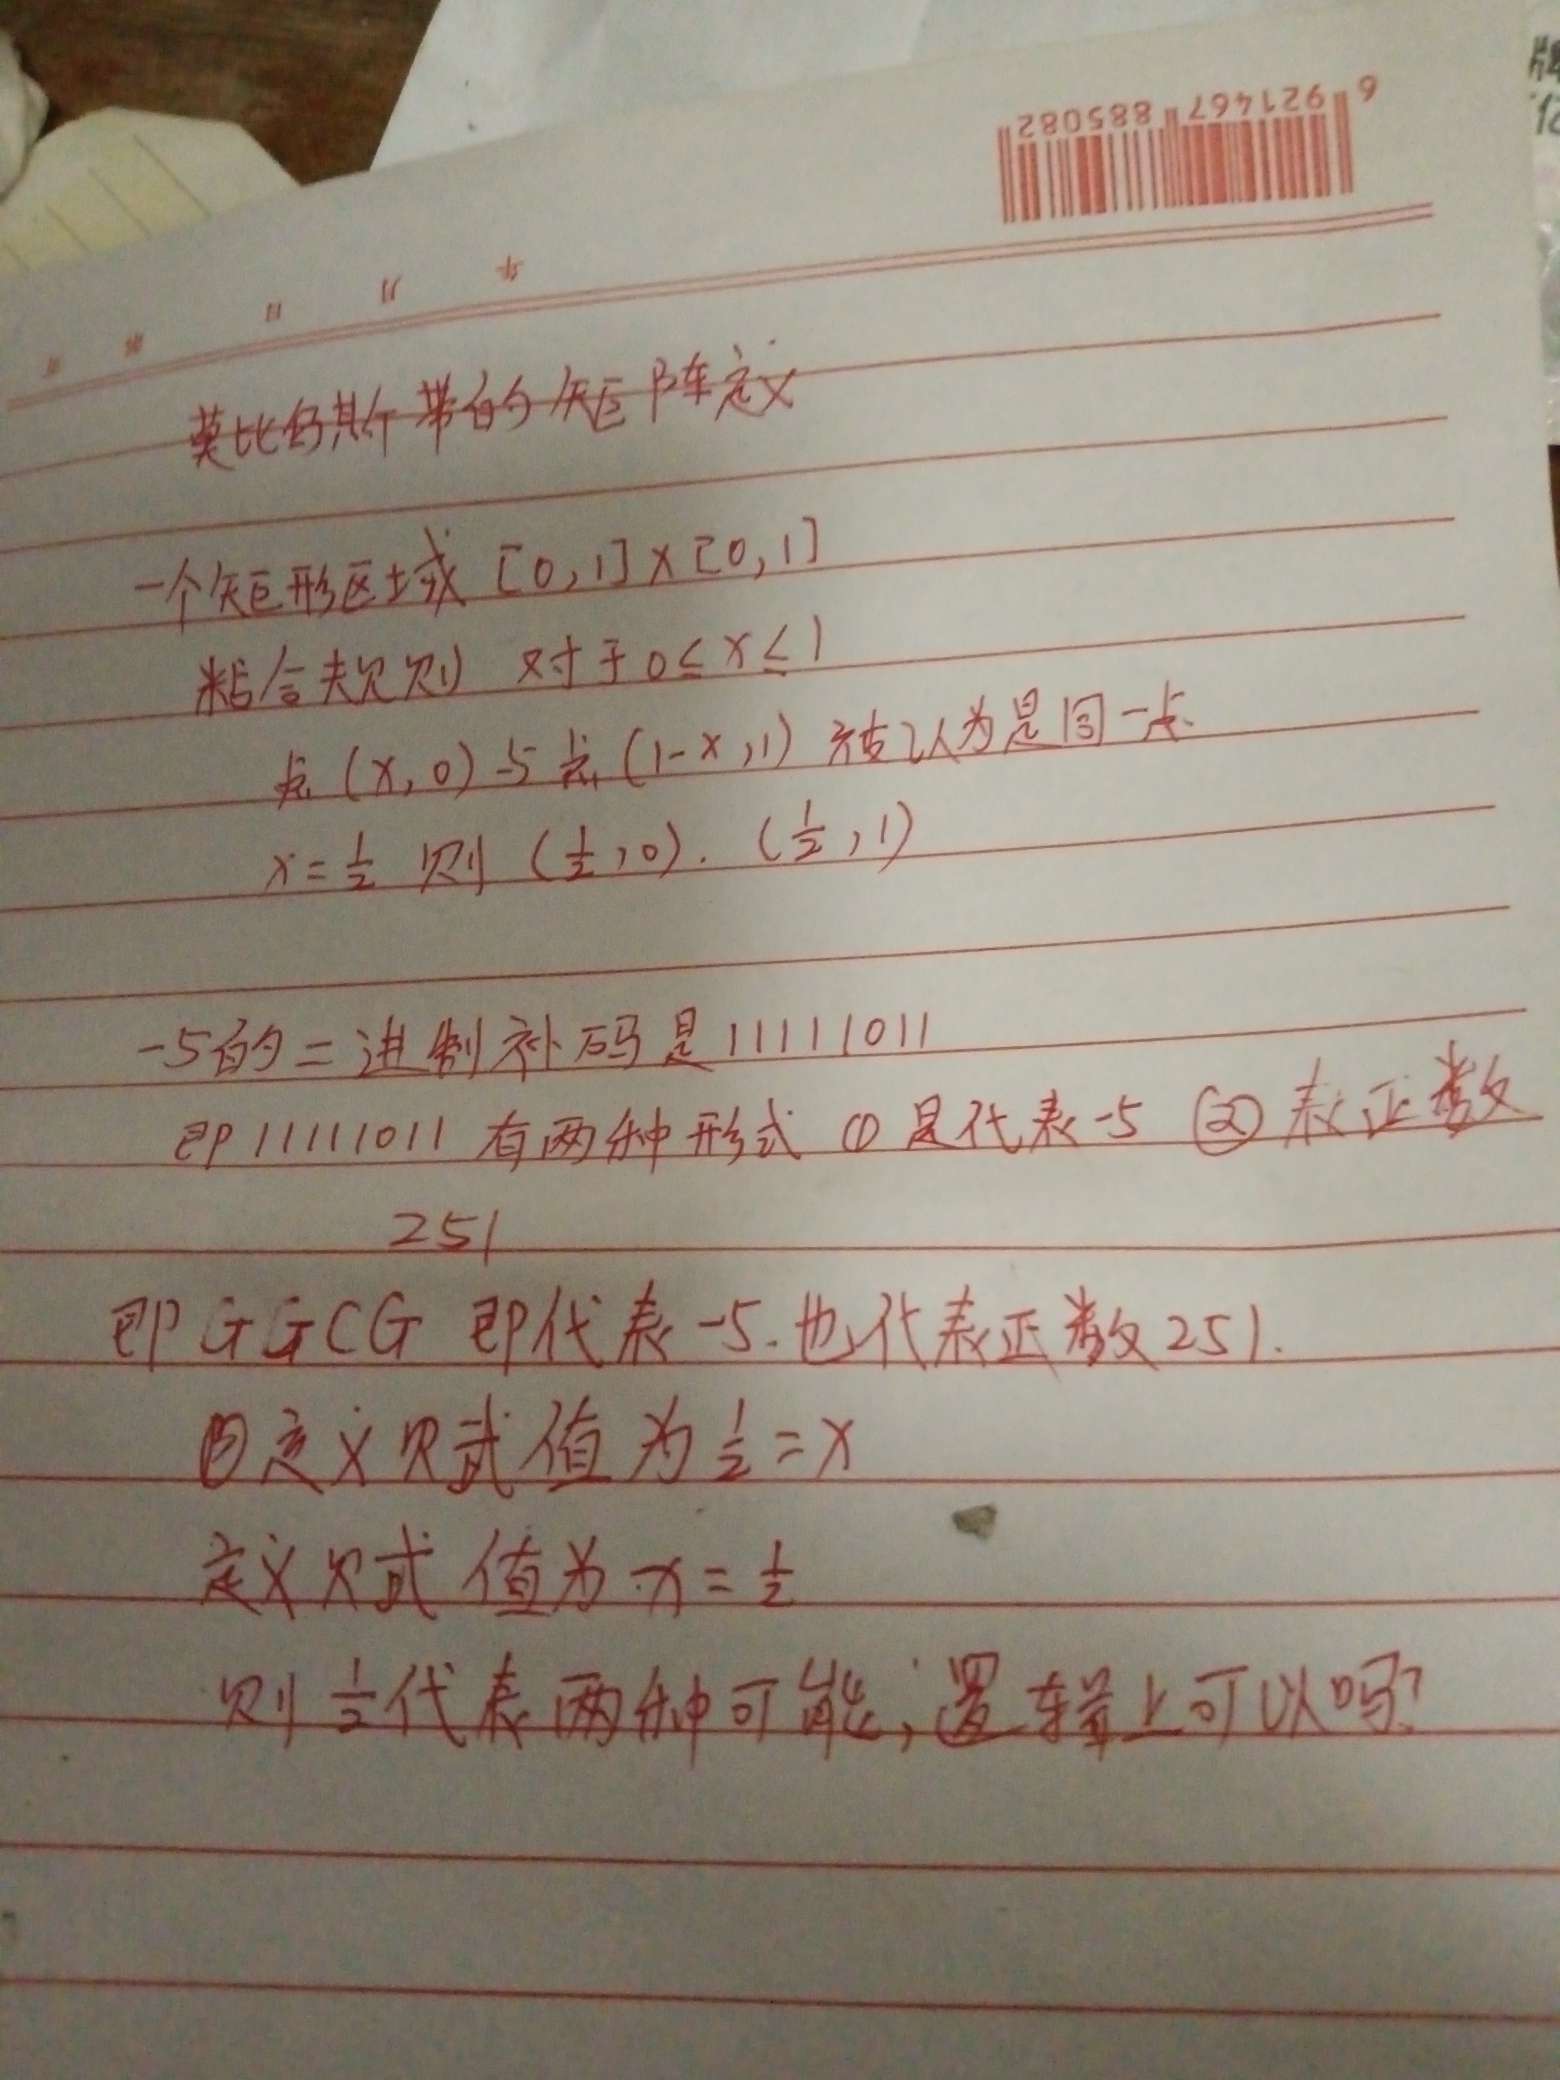 6 921467 885082
莫比乌斯带的矩阵定义
一个矩形区域 [0,1]×[0,1]
粘合规则 对于0≤x≤1
点(x,0)与点(1-x,1)被认为是同一点.
x=1/2 则 (1/2,0). (1/2,1)
-5的二进制补码是11111011
即11111011有两种形式 ① 是代表-5 ② 表正数
251
即GGCG 即代表-5.也代表正数251.
定义 式值为1/2=x
定义 式值为x=1/2
则1/2代表两种可能,逻辑上可以吗?